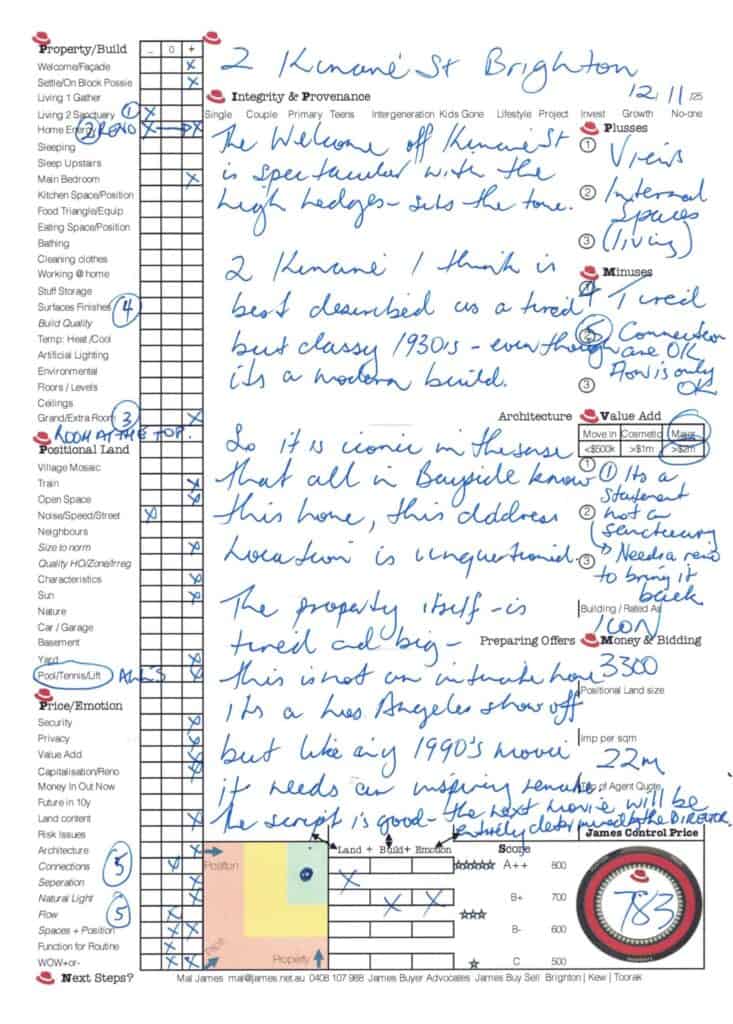 Property/Build - 0 +
2 Kinane St Brighton
Welcome/Façade
Settle/On Block Possie
Living 1 Gather
Living 2 Sanctuary 1
Home Energy 2 RENO
Sleeping
Sleep Upstairs
Main Bedroom
Kitchen Space/Position
Food Triangle/Equip
Eating Space/Position
Bathing
Cleaning clothes
Working @ home
Stuff Storage
Surfaces Finishes 4
Build Quality
Temp: Heat /Cool
Artificial Lighting
Environmental
Floors / Levels
Ceilings
Grand/Extra Room 3
ROOM AT THE TOP.
Positional Land
Village Mosaic
Train
Open Space
Noise/Speed/Street
Neighbours
Size to norm
Quality HO/Zone/Irreg
Characteristics
Sun
Nature
Car / Garage
Basement
Yard
Pool/Tennis/Lift
Price/Emotion
Security
Privacy
Value Add
Capitalisation/Reno
Money In Out Now
Future in 10y
Land content
Risk Issues
Architecture
Connections 5
Seperation
Natural Light
Flow 5
Spaces + Position
Function for Routine
WOW+or-
Next Steps?
12/11/25
Integrity & Provenance
Single Couple Primary Teens Intergeneration Kids Gone Lifestyle Project Invest Growth No-one
The Welcome off Kinane St
is spectacular with the
high hedges - sets the tone.
2 Kinane I think is
best described as a tired
but classy 1930's - even though
its a modern build.
Architecture
So it is iconic in the sense
that all in Bayside know
this home, this address
Location is unquestioned.
The property itself - is
tired and big -
Preparing Offers
this is not an intimate home
Its a Los Angeles show off
but like any 1990's movie
it needs an inspiring remake
The script is good - the next movie will be
entirely determined by the DIRECTOR.
Plusses
1 Views
2 Internal
Spaces
3 (living)
Minuses
1 Tired
2 Connection
are OK
Flow is only
3 OK
Value Add
Move In Cosmetic Major
<$500k >$1m >$2m
1 1 Its a
statement
2 not a
sanctuary
3 Needs a reno
to bring it
back
Building / Rated As
ICON
Money & Bidding
3300
Positional Land size
Imp per sqm
22m
Top of Agent Quote
James Control Price
783
Position
Price
Property
Land + Build + Emotion Score
A++ 800
B+ 700
B- 600
C 500
Mal James mal@james.net.au 0408 107 988 James Buyer Advocates James Buy Sell Brighton | Kew | Toorak